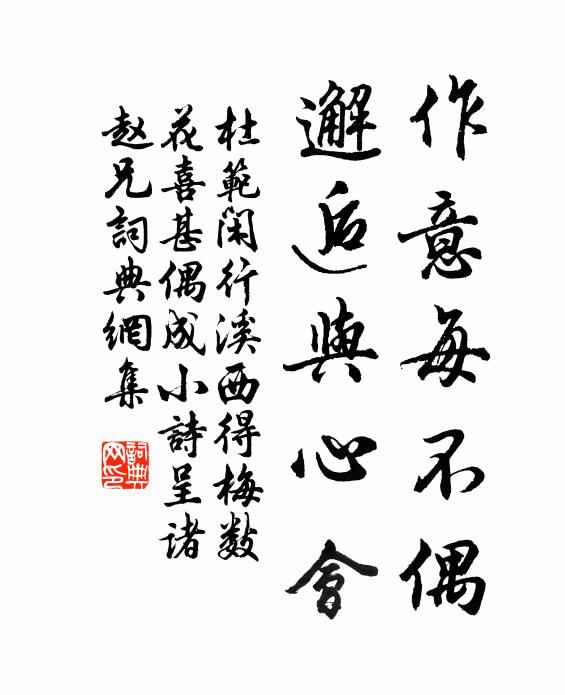 作意每不偶
邂逅與心會
杜範閑行溪西得梅数
花喜甚偶成小詩呈诸
赵兄詞典網集
詞典
网印